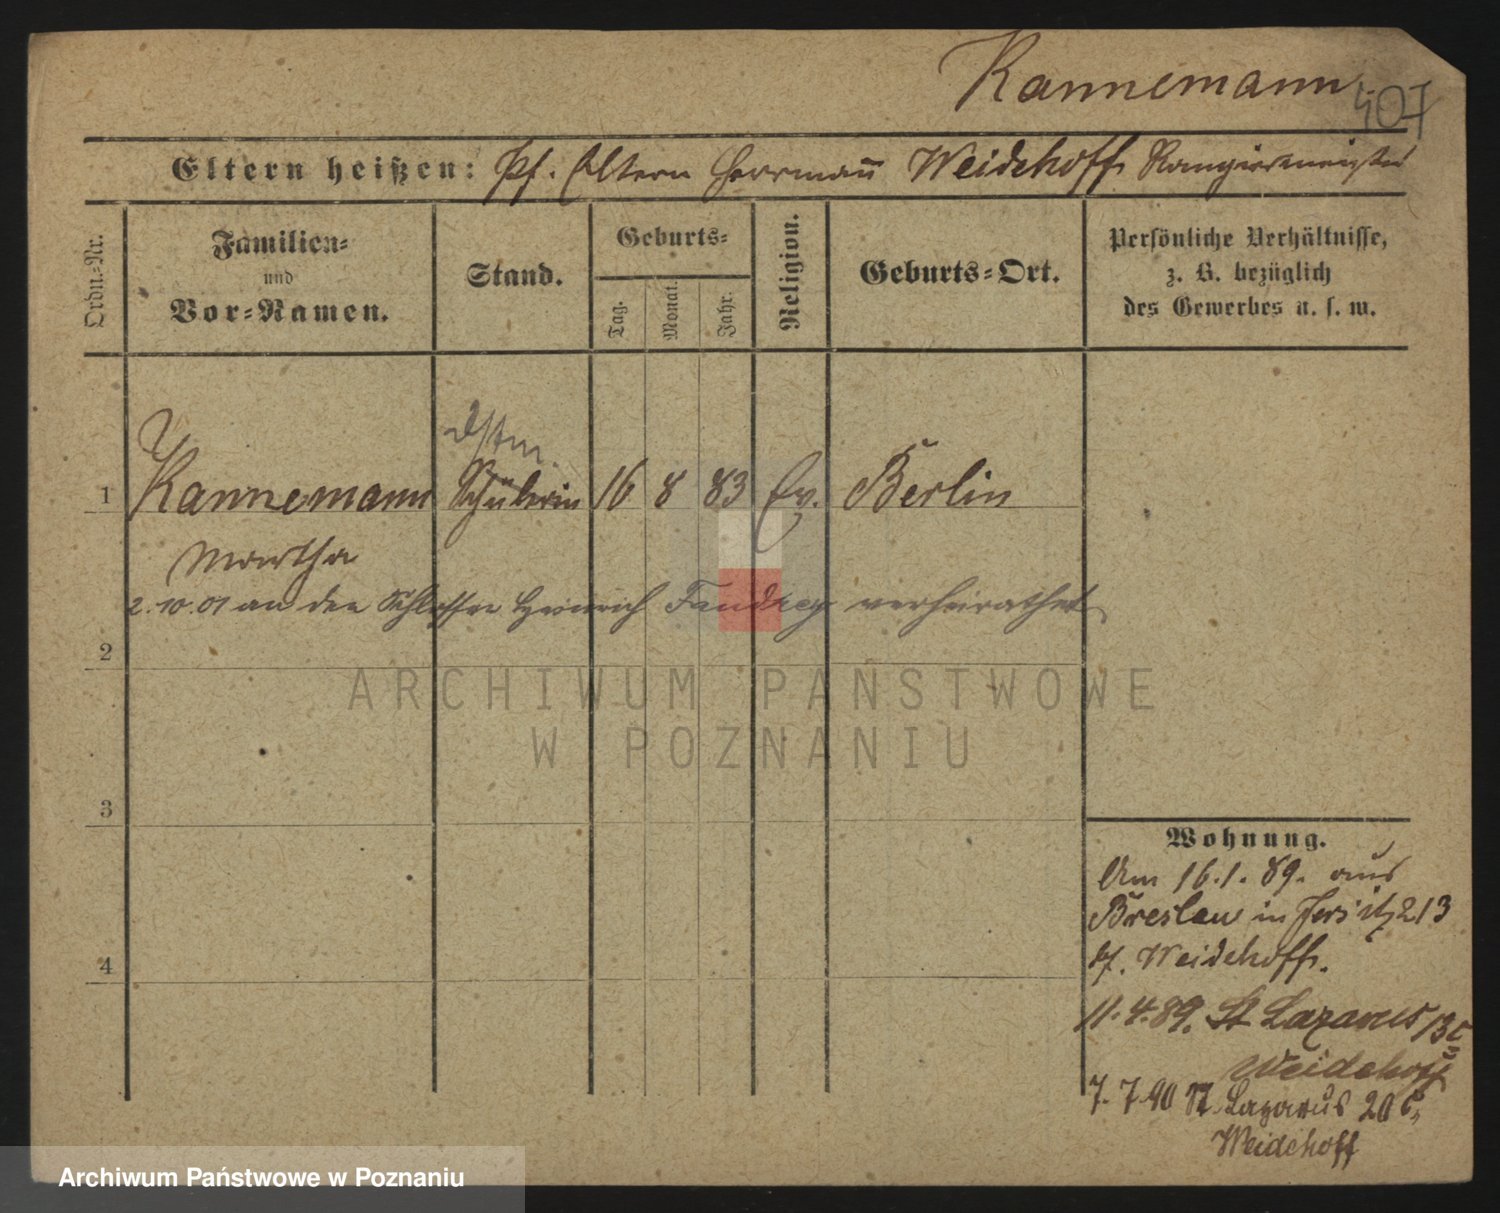 Kannemann
407
Eltern heißen: Pf. Eltern Herrmann Weidehoff Rangiermeister
Ordn.-Nr.
Familien-
und
Vor-Namen.
Stand.
Geburts-
Tag.
Monat.
Jahr.
Religion.
Geburts-Ort.
Persönliche Verhältnisse,
z. B. bezüglich
des Gewerbes u. s. w.
1 Kannemann Schülerin 16 8 83 Ev. Berlin
Martha
2.10.01 an den Schlosser Heinrich Fandrey verheirathet
2
ARCHIWUM PAŃSTWOWE
W POZNANIU
3
4
Wohnung.
Am 16.1.89. aus
Breslau in Jersitz 213
b/. Weidehoff.
11.4.89. St Lazarus 13c
Weidehoff
7.7.90 St. Lazarus 20c,
Weidehoff
Archiwum Państwowe w Poznaniu